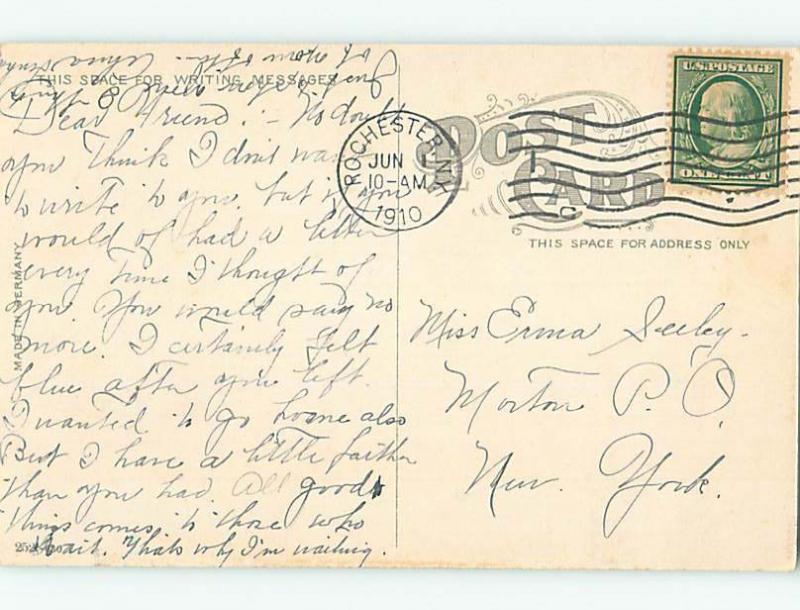 THIS SPACE FOR WRITING MESSAGES
Dear Friend:- No doubt
you think I don't wa
to write to you, but if you
would of had a letter
every time I thought of
you. You would say no
more. I certainly felt
blue after you left.
I wanted to go home also
But I have a little faither
than you had. All good
things comes to those who
wait. Thats why I'm waiting.
MADE IN GERMANY
ROCHESTER, N.Y.
JUN 1
10-AM
1910
POST
CARD
U.S. POSTAGE
ONE CENT
THIS SPACE FOR ADDRESS ONLY
Miss Erma Seeley.
Morton P.O.
New. York.